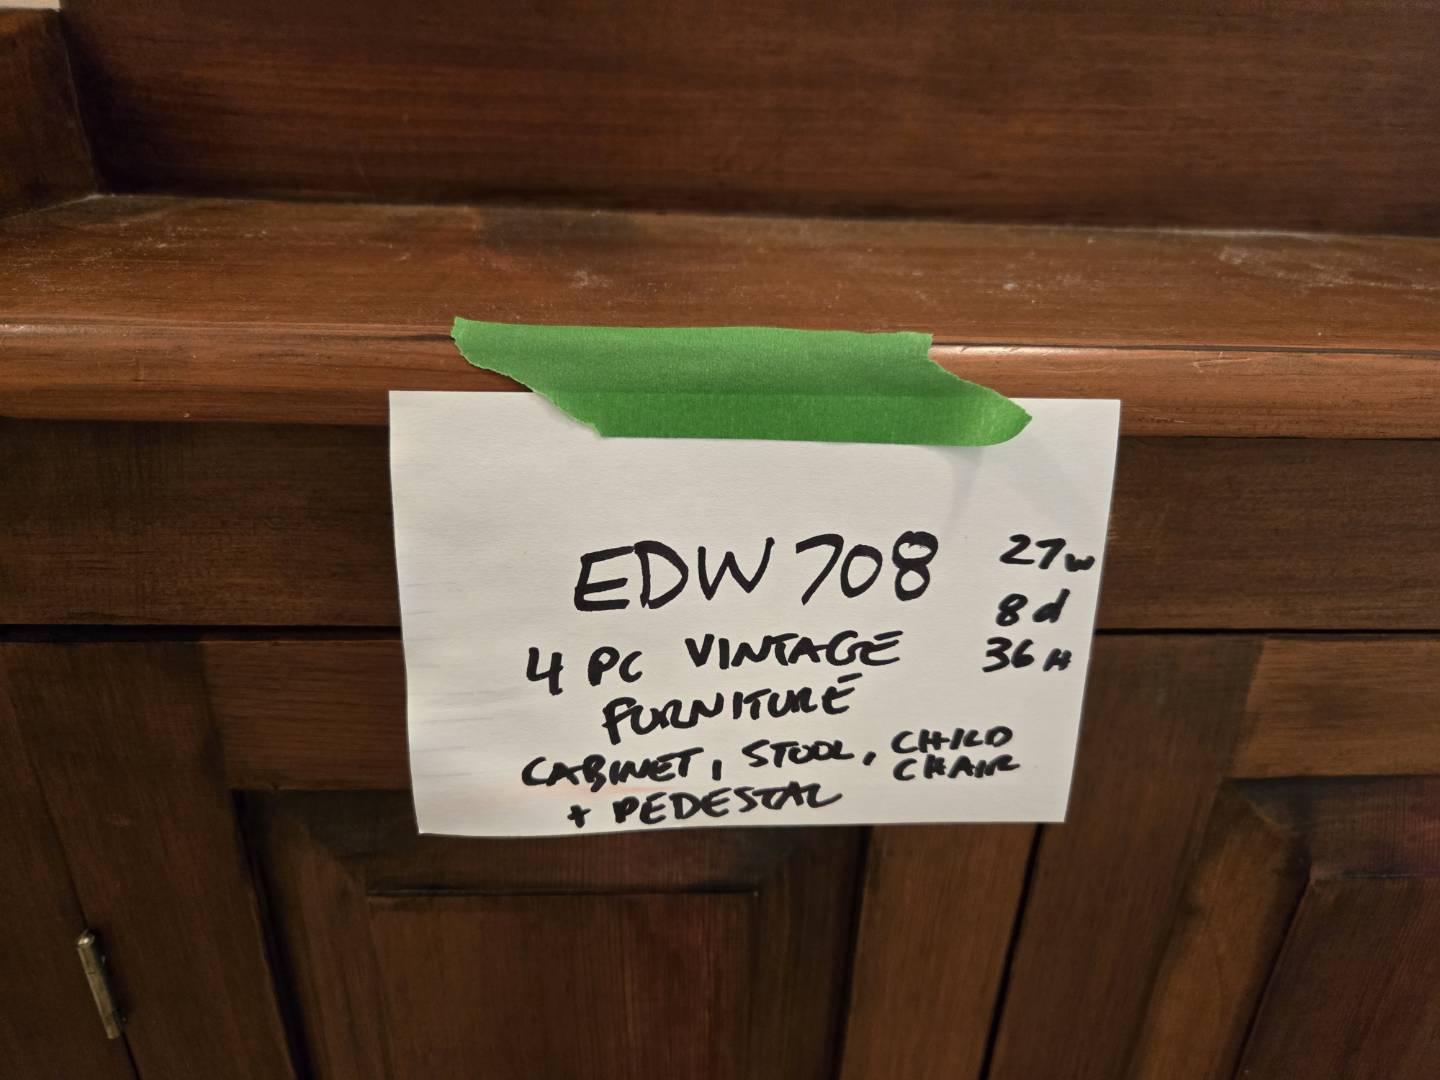 EDW 708
4 PC VINTAGE
FURNITURE
CABINET, STOOL, CHILD
CHAIR
+ PEDESTAL
27w
8d
36H